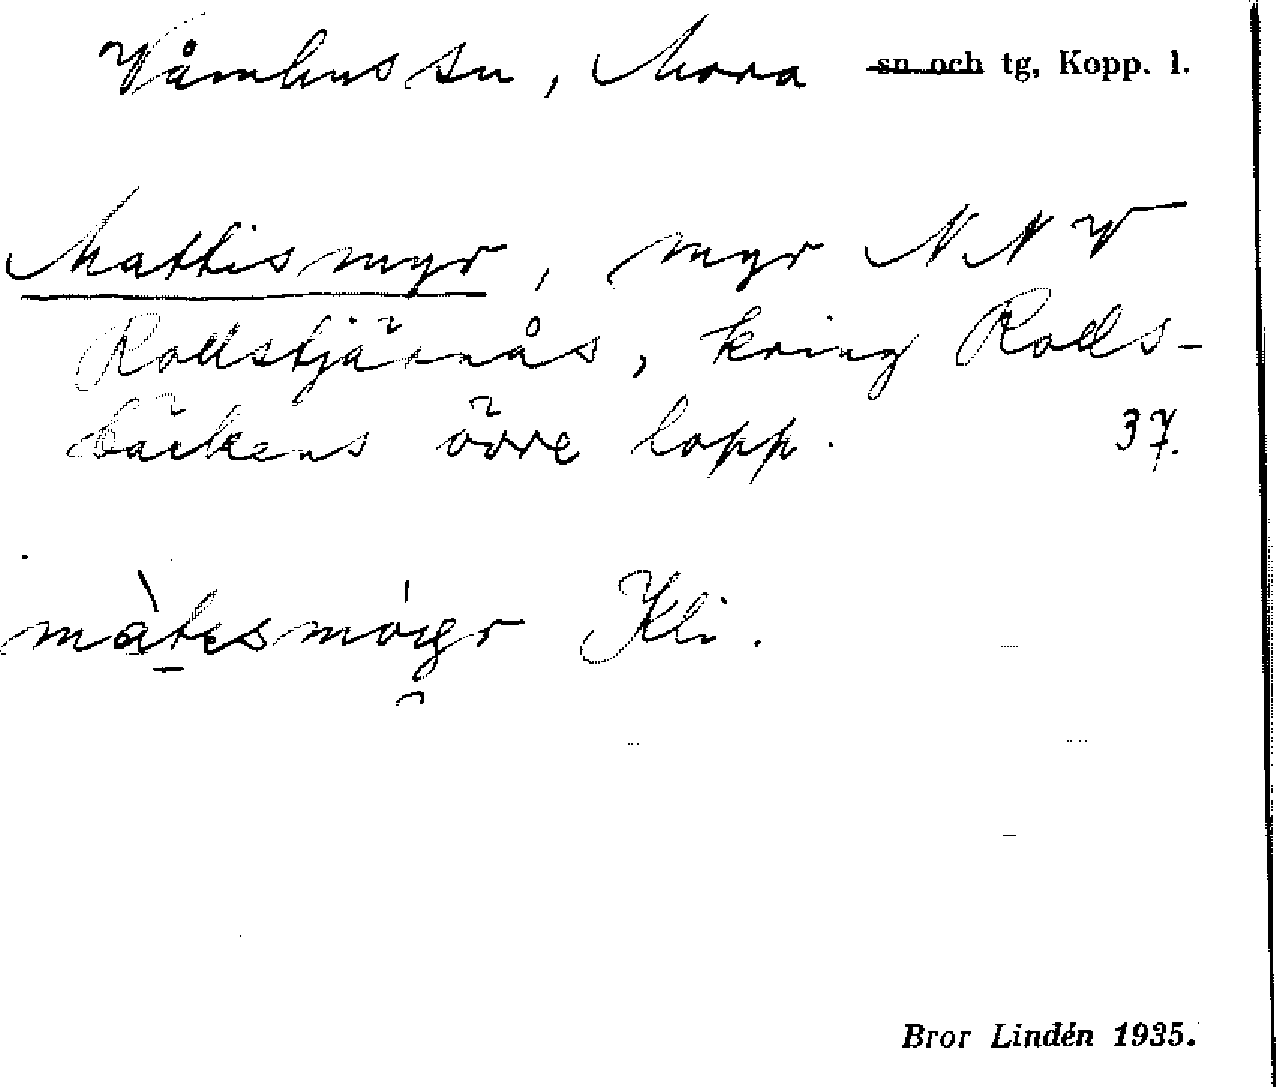 Våmhus sn, Mora sn och tg, Kopp. l.
Mattismyr, myr NNV
Rollstjärnås, kring Rolls-
bäckens övre lopp. 37.
màtesmóyr Kli.
Bror Lindén 1935.